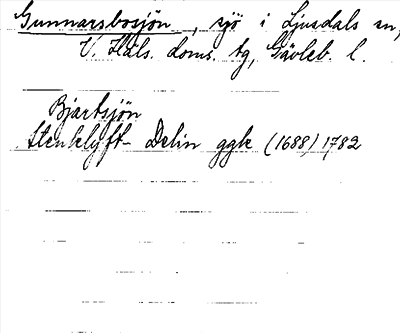 Gunnarsbosjön, sjö i Ljusdals sn,
V. Häls. doms. tg, Gävleb. l.
Bjartsjön
Stenklyft- Delin ggk (1688) 1782